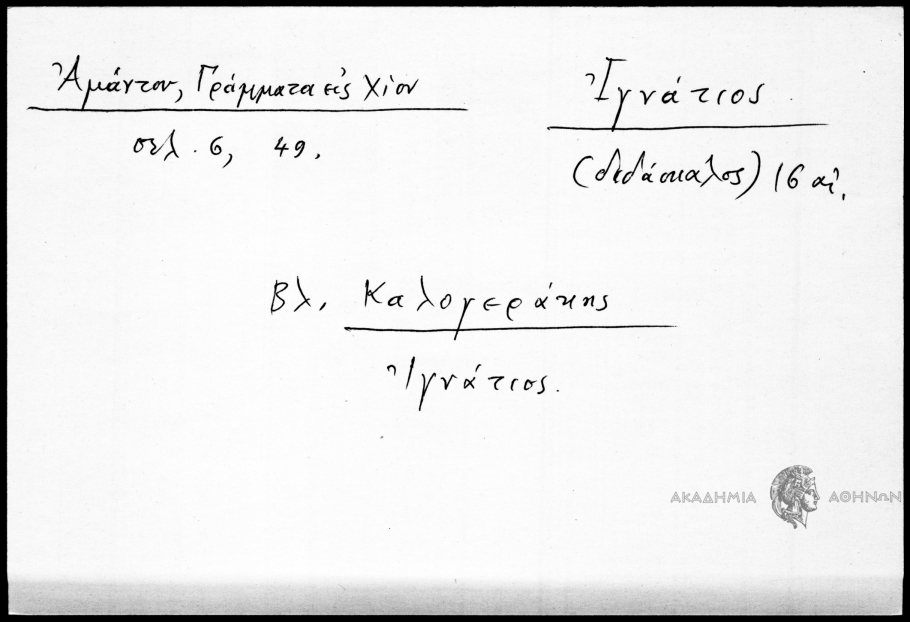 Ἀμάντου, Γράμματα εἰς Χίον
σελ. 6, 49.
Ἰγνάτιος.
(διδάσκαλος) 16 αἰ.
Βλ. Καλογεράκης
Ἰγνάτιος.
ΑΚΑΔΗΜΙΑ ΑΘΗΝΩΝ